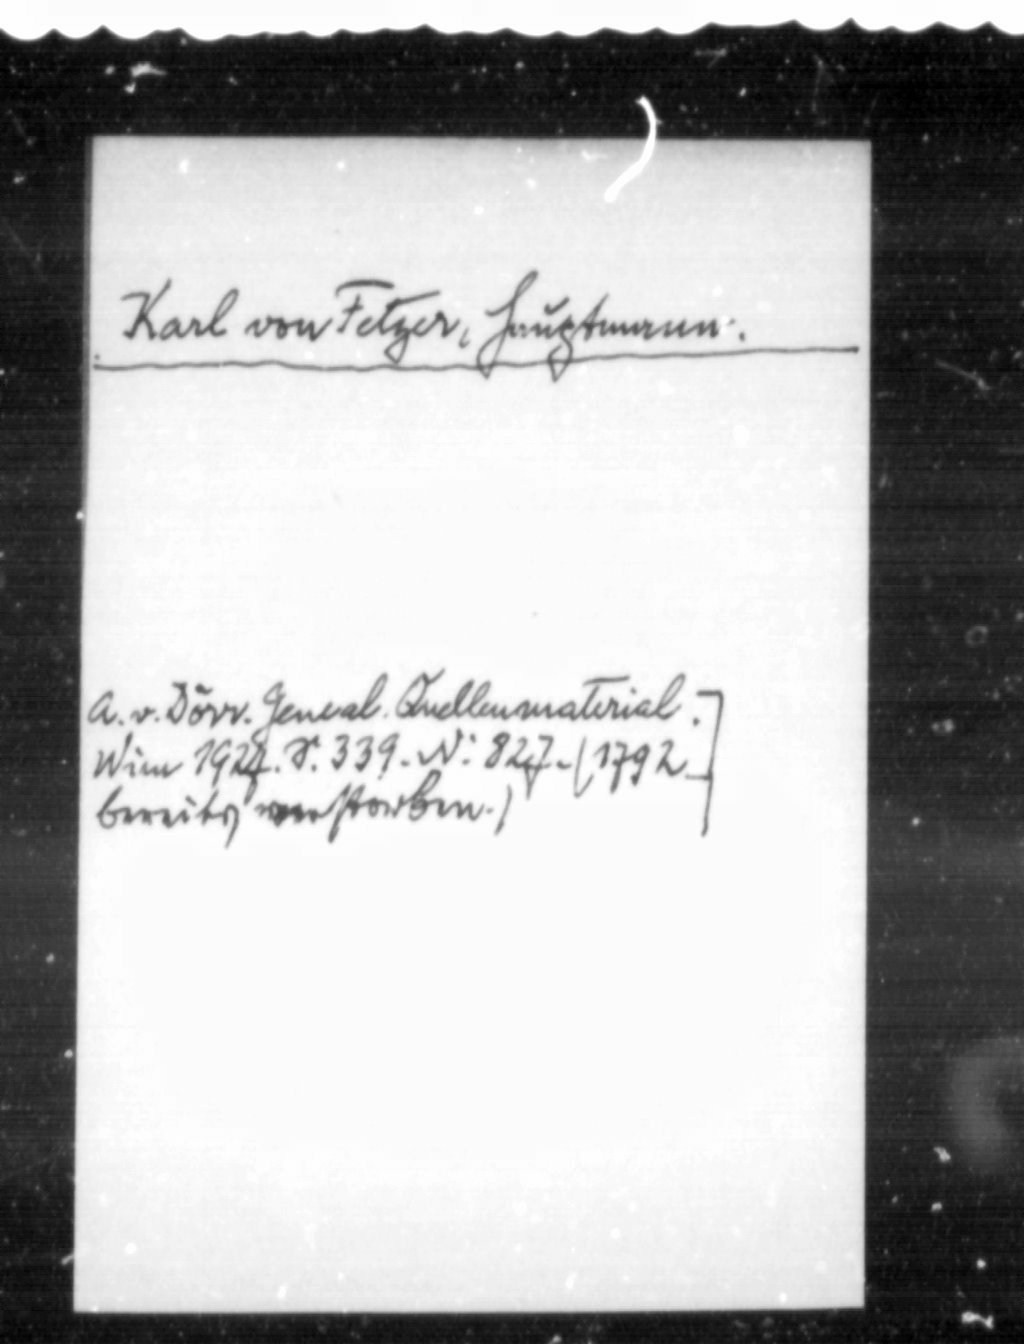 Karl von Fetzer, Hauptmann.
A. v. Dörr. Geneal. Quellenmaterial.
Wien 1927. S. 339. N: 827. (1792
bereits verstorben.)